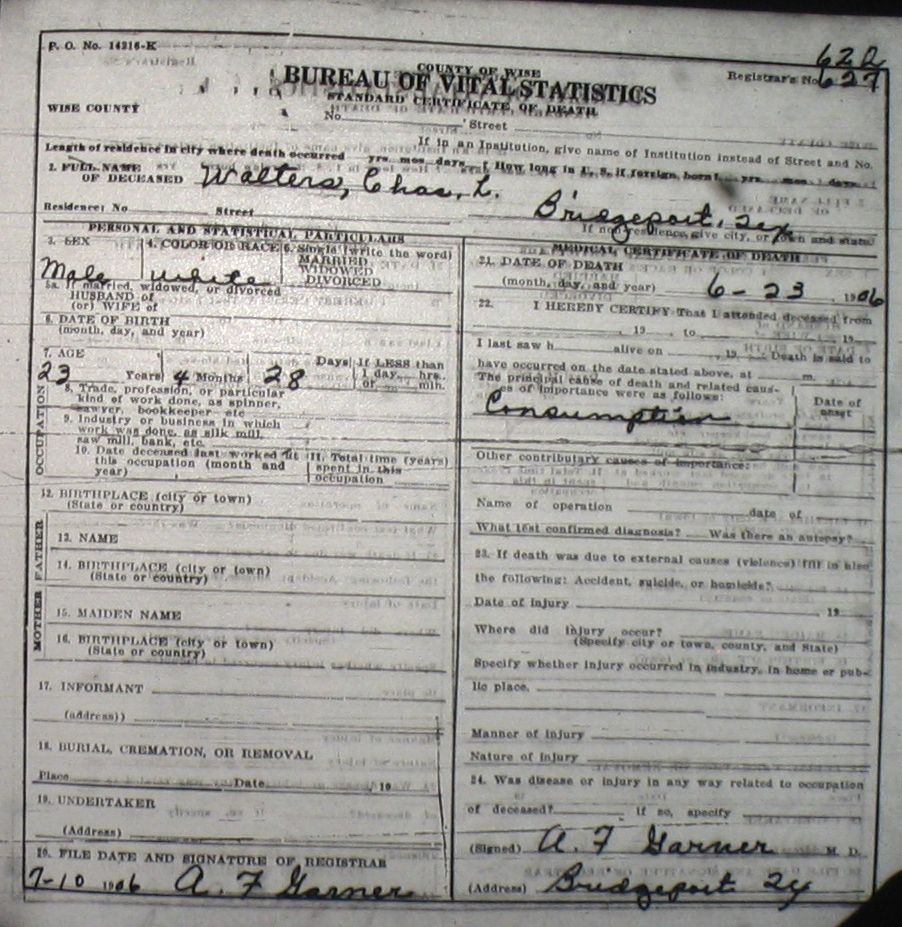 P. O. No. 14216-K
622
Registrar's No. 627
COUNTY OF WISE
BUREAU OF VITAL STATISTICS
STANDARD CERTIFICATE OF DEATH
WISE COUNTY
No. Street
If in an Institution, give name of Institution instead of Street and No.
Length of residence in city where death occurred yrs. mos. days. How long in U. S. if foreign born? yrs. mos. days
2. FULL NAME
OF DECEASED Walters, Chas, L.
Residence: No. Street Bridgeport, Tex
If non-residence, give city, or town and state
PERSONAL AND STATISTICAL PARTICULARS
3. SEX 4. COLOR OR RACE 5. Single (write the word)
MARRIED
WIDOWED
DIVORCED
Male white
5a. If married, widowed, or divorced
HUSBAND of
(or) WIFE of
6. DATE OF BIRTH
(month, day, and year)
7. AGE
23 Years 4 Months 28 Days If LESS than
1 day, hrs.
or min.
OCCUPATION
8. Trade, profession, or particular
kind of work done, as spinner,
sawyer, bookkeeper etc
9. Industry or business in which
work was done, as silk mill,
saw mill, bank, etc.
10. Date deceased last worked at
this occupation (month and
year)
11. Total time (years)
spent in this
occupation
12. BIRTHPLACE (city or town)
(State or country)
FATHER
13. NAME
14. BIRTHPLACE (city or town)
(State or country)
MOTHER
15. MAIDEN NAME
16. BIRTHPLACE (city or town)
(State or country)
17. INFORMANT
(address))
18. BURIAL, CREMATION, OR REMOVAL
Place Date 19
19. UNDERTAKER
(Address)
FILE DATE AND SIGNATURE OF REGISTRAR
7-10 1906 A. F Garner
MEDICAL CERTIFICATE OF DEATH
21. DATE OF DEATH
(month, day, and year) 6-23, 1906
22. I HEREBY CERTIFY That I attended deceased from
, 19 to , 19
I last saw h alive on , 19 Death is said to
have occurred on the date stated above, at m.
The principal cause of death and related caus-
es of importance were as follows:
Date of
onset
Consumption
Other contributary causes of importance:
Name of operation date of
What test confirmed diagnosis? Was there an autopsy?
23. If death was due to external causes (violence) fill in also
the following: Accident, suicide, or homicide?
Date of injury 19
Where did injury occur?
(Specify city or town, county, and State)
Specify whether injury occurred in industry, in home or pub-
lic place.
Manner of injury
Nature of injury
24. Was disease or injury in any way related to occupation
of deceased? if so, specify
(Signed) A. F Garner M. D.
(Address) Bridgeport Tx